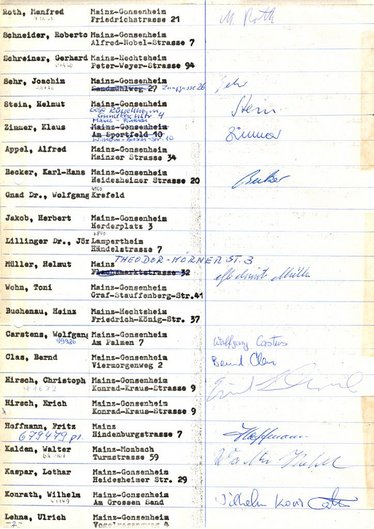 Roth, Manfred Mainz-Gonsenheim M. Roth
Friedrichstrasse 21
Schneider, Roberto Mainz-Gonsenheim
Alfred-Nobel-Strasse 7
Schreiner, Gerhard Mainz-Hechtsheim
Peter-Weyer-Strasse 94
Sehr, Joachim Mainz-Gonsenheim Sehr
Sandmühlweg 27
Stein, Helmut Stein
4
Zimmer, Klaus Mainz-Gonsenheim Zimmer
Am Sportfeld 10
Appel, Alfred Mainz-Gonsenheim
Mainzer Strasse 34
Becker, Karl-Hans Mainz-Gonsenheim Becker
Heidesheimer Strasse 20
Gnad Dr., Wolfgang Krefeld
Jakob, Herbert Mainz-Gonsenheim
Herderplatz 3
Lillinger Dr., Jör Lampertheim
Händelstrasse 7
Müller, Helmut Mainz THEODOR-KÖRNER ST. 3
Flachsmarktstrasse 32 Helmut Müller
Wohn, Toni Mainz-Gonsenheim
Graf-Stauffenberg-Str.41
Buchenau, Heinz Mainz-Hechtsheim
Friedrich-König-Str. 37
Carstens, Wolfgang Mainz-Gonsenheim Wolfgang Carstens
Am Palmen 7
Clas, Bernd Mainz-Gonsenheim Bernd Clas
Viermorgenweg 2
Hirsch, Christoph Mainz-Gonsenheim
Konrad-Kraus-Strasse 9
Hirsch, Erich Mainz-Gonsenheim
Konrad-Kraus-Strasse 9
Hoffmann, Fritz Mainz Hoffmann
679479 Hindenburgstrasse 7
Kalden, Walter Mainz-Mombach Walter
Turmstrasse 59
Kaspar, Lothar Mainz-Gonsenheim
Heidesheimer Str. 29
Konrath, Wilhelm Mainz-Gonsenheim Wilhelm Konrath
Am Grossen Sand
Lehna, Ulrich Mainz-Gonsenheim
-2-